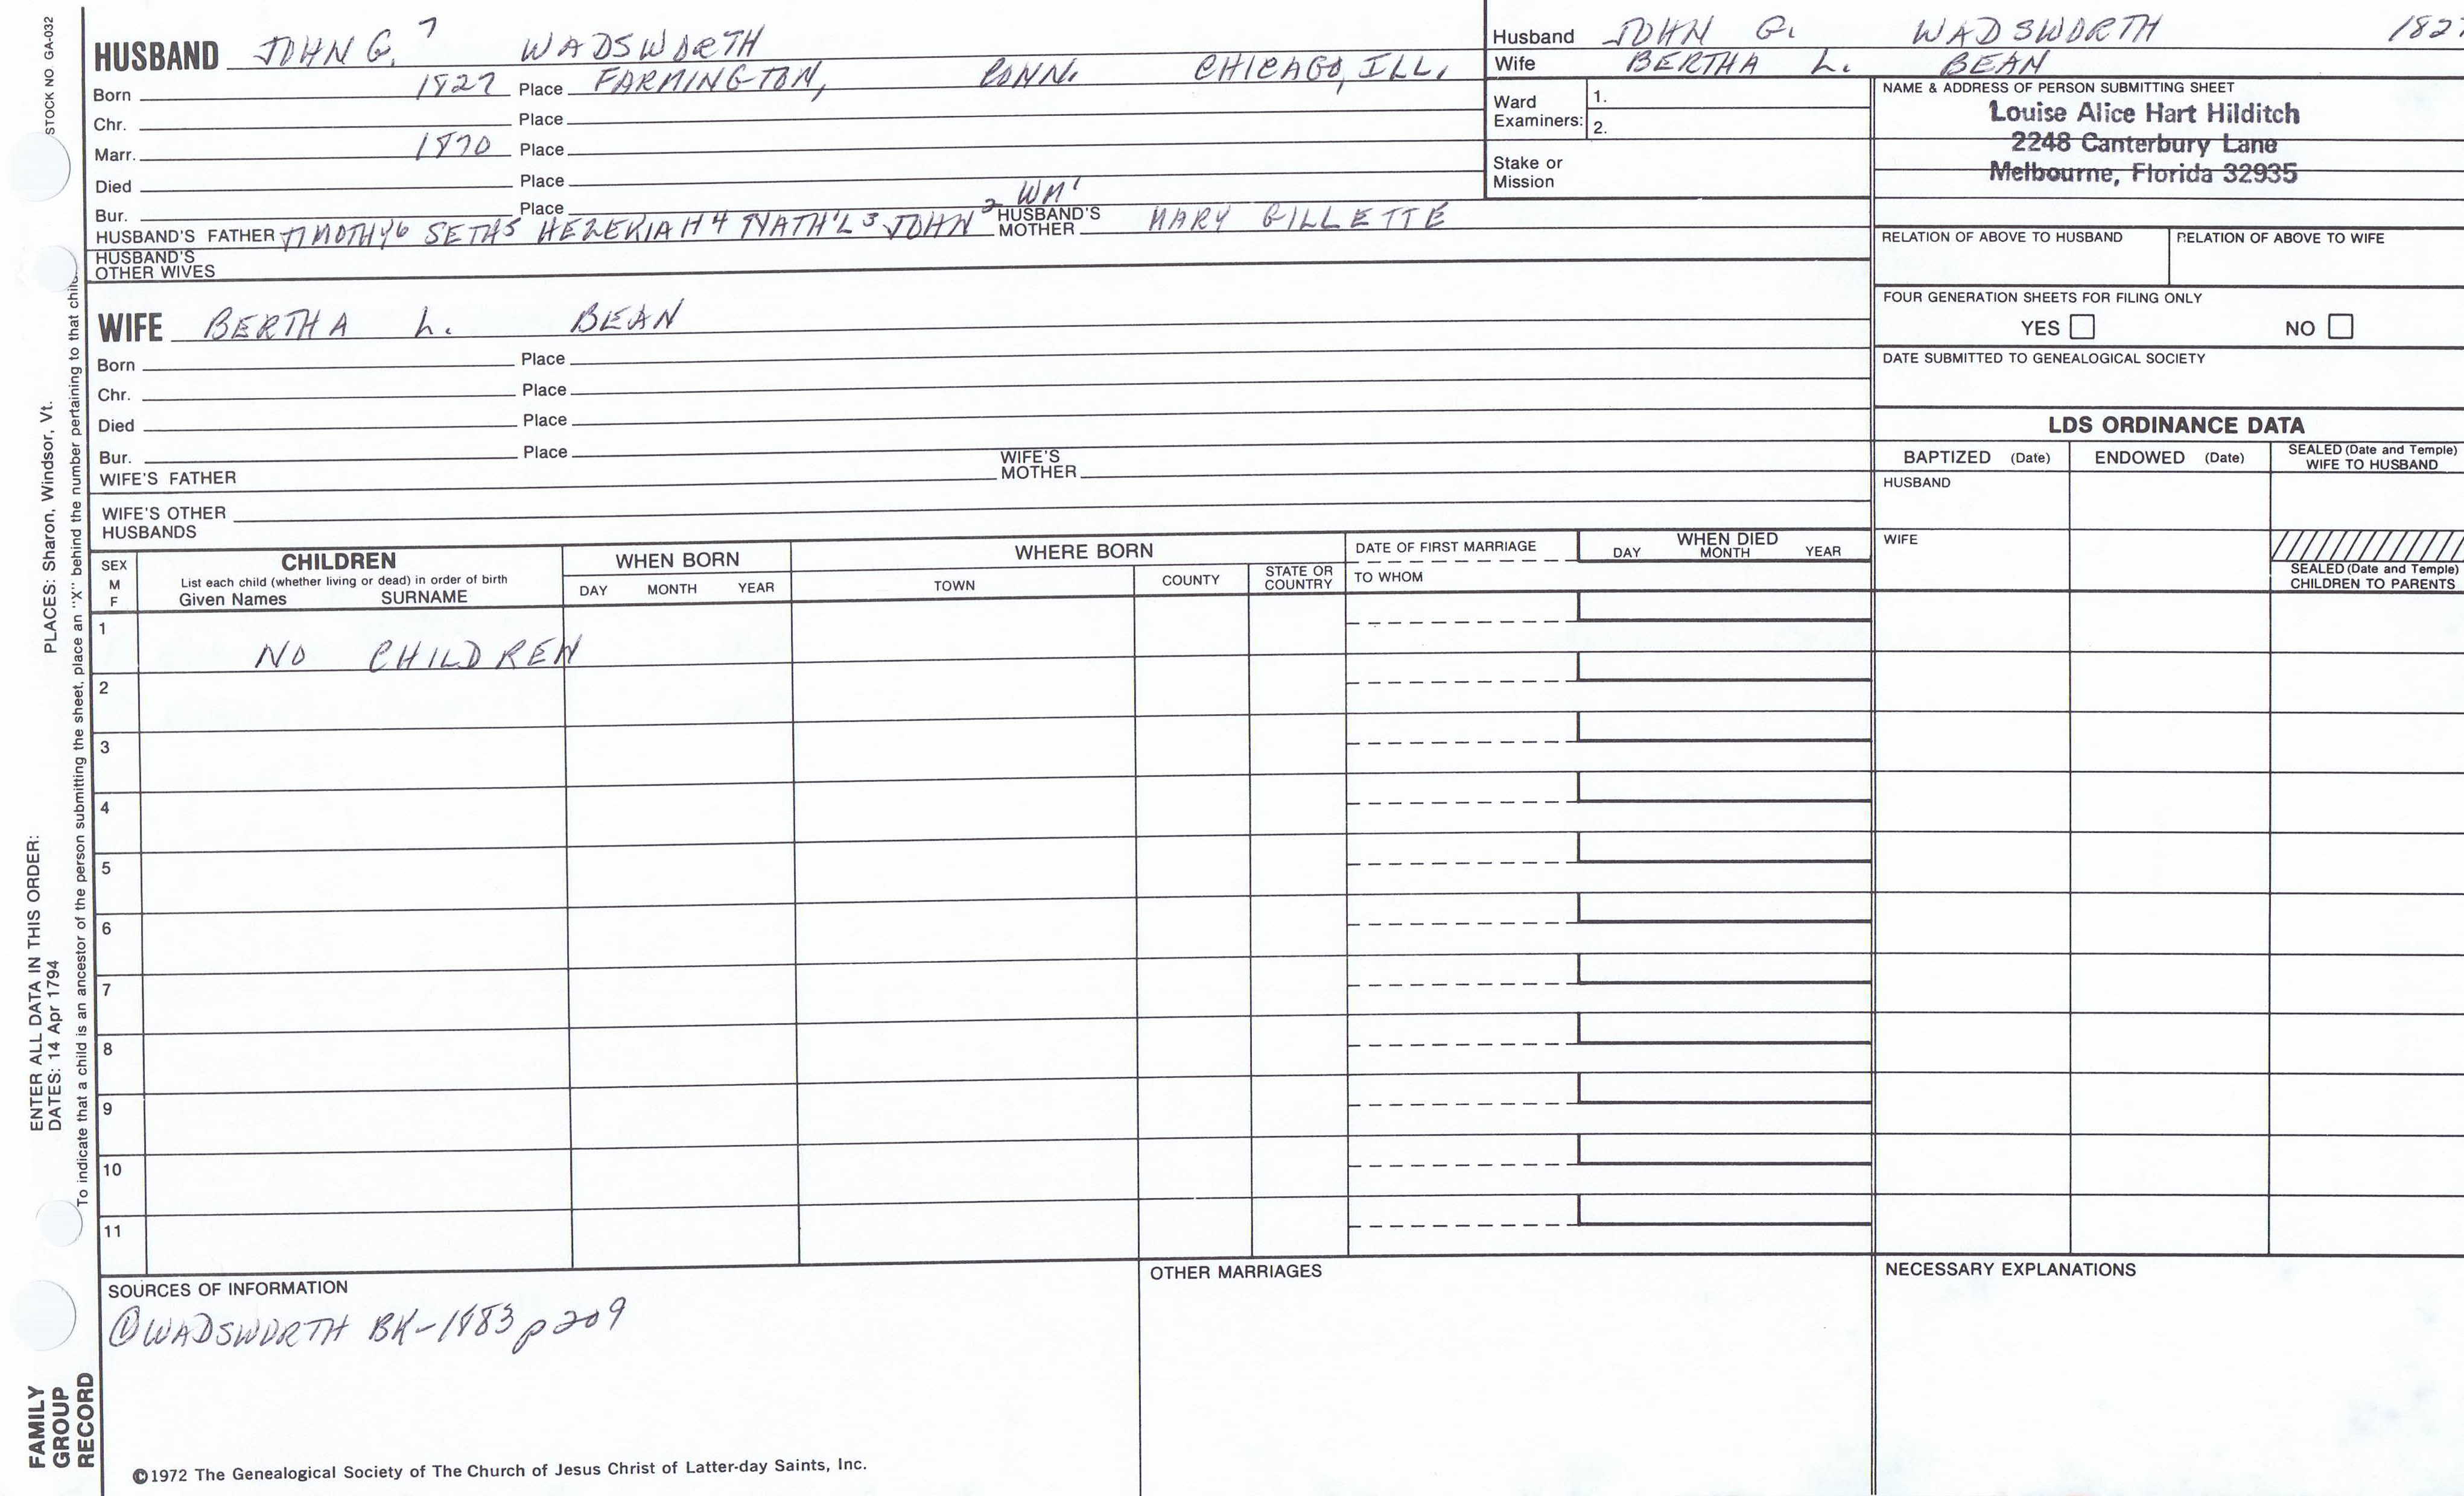 STOCK NO GA-032
HUSBAND JOHN G. 7 WADSWORTH
Born 1827 Place FARMINGTON, CONN. CHICAGO, ILL.
Chr. Place
Marr. 1870 Place
Died Place
Bur. Place
HUSBAND'S FATHER TIMOTHY6 SETH5 HEZEKIAH4 NATH'L3 JOHN2 WM' HUSBAND'S MOTHER MARY GILLETTE
HUSBAND'S OTHER WIVES
WIFE BERTHA L. BEAN
Born Place
Chr. Place
Died Place
Bur. Place
WIFE'S FATHER WIFE'S MOTHER
WIFE'S OTHER HUSBANDS
Husband JOHN G. WADSWORTH 1827
Wife BERTHA L. BEAN
Ward Examiners: 1.
2.
Stake or Mission
NAME & ADDRESS OF PERSON SUBMITTING SHEET
Louise Alice Hart Hilditch
2248 Canterbury Lane
Melbourne, Florida 32935
RELATION OF ABOVE TO HUSBAND RELATION OF ABOVE TO WIFE
FOUR GENERATION SHEETS FOR FILING ONLY
YES NO
DATE SUBMITTED TO GENEALOGICAL SOCIETY
LDS ORDINANCE DATA
BAPTIZED (Date) ENDOWED (Date) SEALED (Date and Temple) WIFE TO HUSBAND
HUSBAND
WIFE
SEALED (Date and Temple) CHILDREN TO PARENTS
SEX M F
CHILDREN
List each child (whether living or dead) in order of birth
Given Names SURNAME
WHEN BORN
DAY MONTH YEAR
WHERE BORN
TOWN COUNTY STATE OR COUNTRY
DATE OF FIRST MARRIAGE
TO WHOM
WHEN DIED
DAY MONTH YEAR
1 NO CHILDREN
2
3
4
5
6
7
8
9
10
11
SOURCES OF INFORMATION
① WADSWORTH BK-1883 p209
OTHER MARRIAGES
NECESSARY EXPLANATIONS
©1972 The Genealogical Society of The Church of Jesus Christ of Latter-day Saints, Inc.
ENTER ALL DATA IN THIS ORDER:
DATES: 14 Apr 1794 PLACES: Sharon, Windsor, Vt.
To indicate that a child is an ancestor of the person submitting the sheet, place an "X" behind the number pertaining to that child
FAMILY
GROUP
RECORD